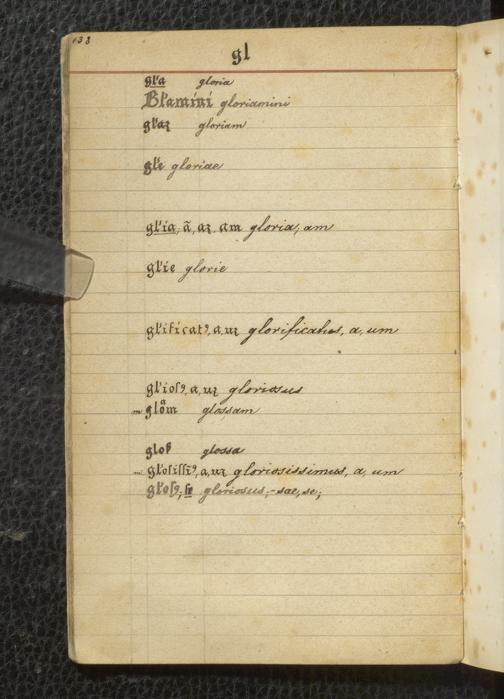 138
gl
gl'a gloria
Gl'amini gloriamini
gl'aꝫ gloriam
gl'e gloriae
gl'ia, ā, aꝫ, am gloria, am
gl'ie glorie
gl'ificatꝰ, a, uꝫ glorificatus, a, um
gl'iosꝰ, a, uꝫ gloriosus
glōm glossam
glos̄ glossa
gl'osissiꝰ, a, uꝫ gloriosissimus, a, um
gl'osꝰ, se gloriosus, -sae, se;